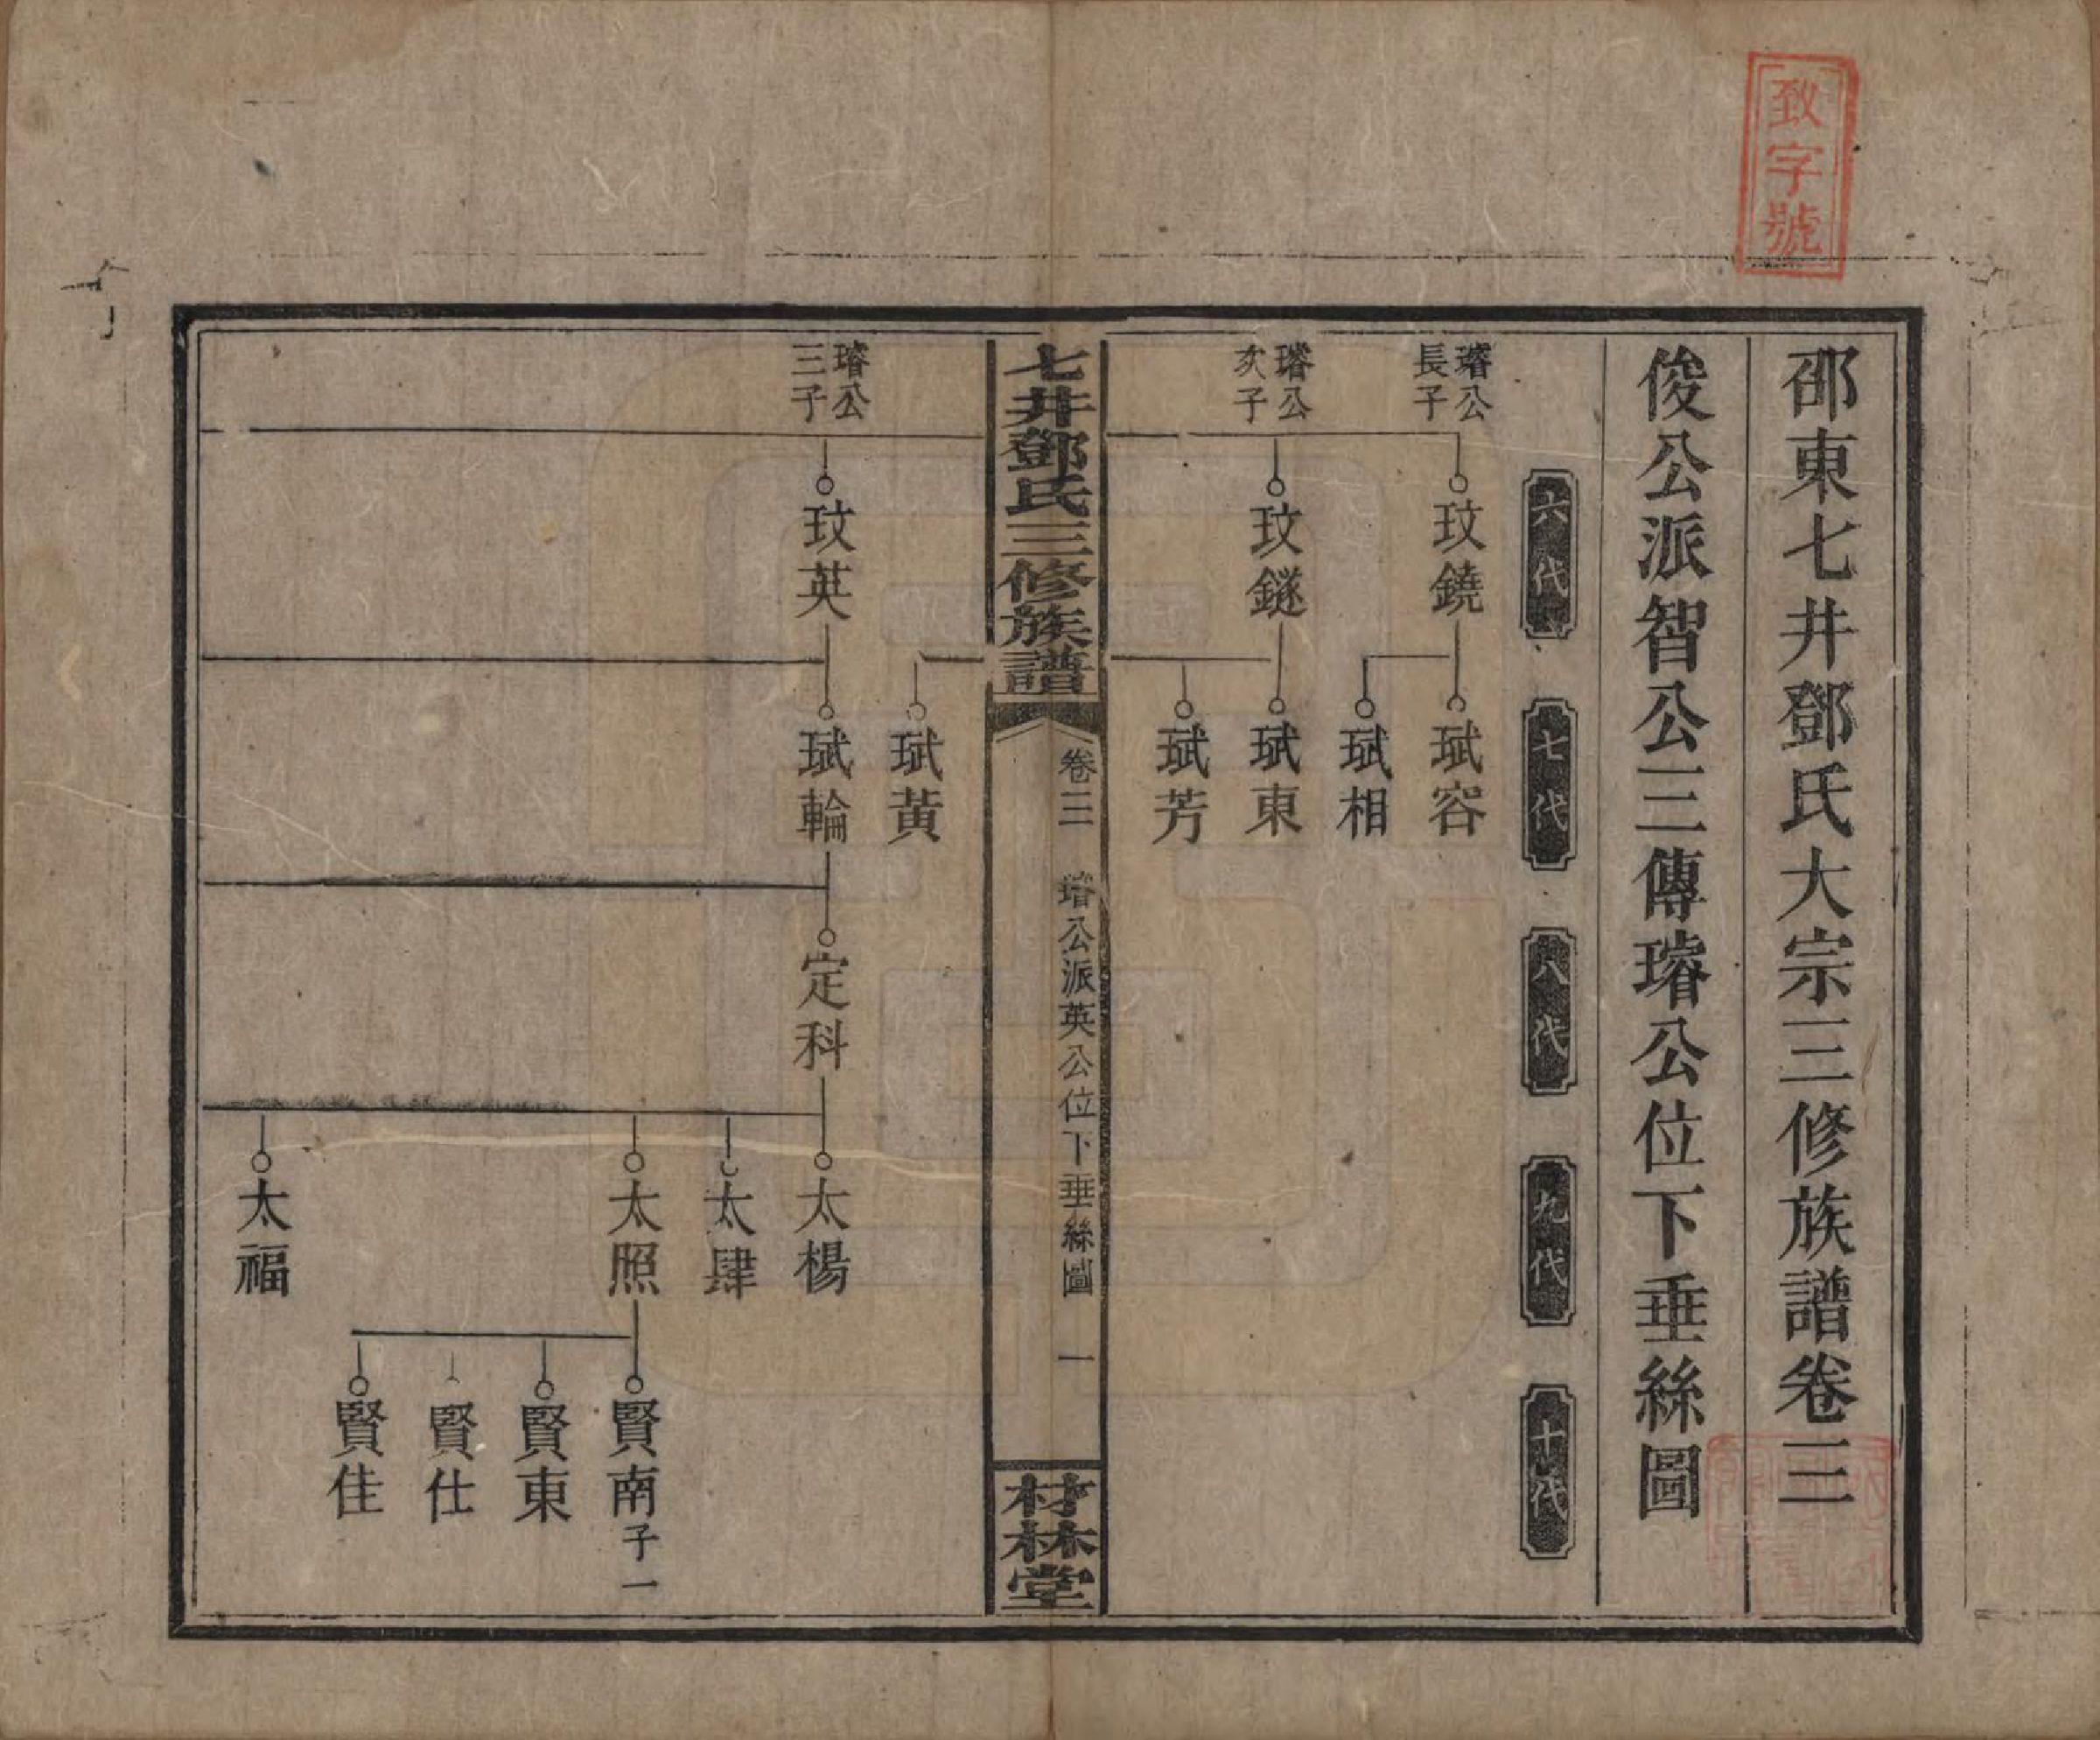 致字號
邵東七井鄧氏大宗三修族譜卷三
俊公派智公三傳璿公位下垂絲圖
六代
七代
八代
九代
十代
璿公
長子
玟鐃
珷容
珷相
璿公
次子
玟鐩
珷東
珷芳
七井鄧氏三修族譜
卷三
璿公派英公位下垂絲圖
一
材林堂
珷黃
璿公
三子
玟英
珷輪
定科
太楊
太肆
太照
賢南子一
賢東
賢仕
賢佳
太福